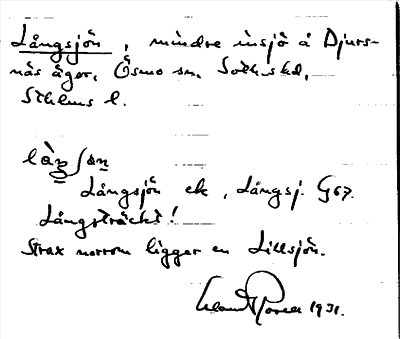 Långsjön, mindre insjö å Djurs-
näs ägor, Ösmo sn, Sotholms hd,
Sthlms l.
làŋʃøn
Långsjön ek, Långsj. G67.
Långsträckt!
Strax norrom ligger en Lillsjön.
1931.